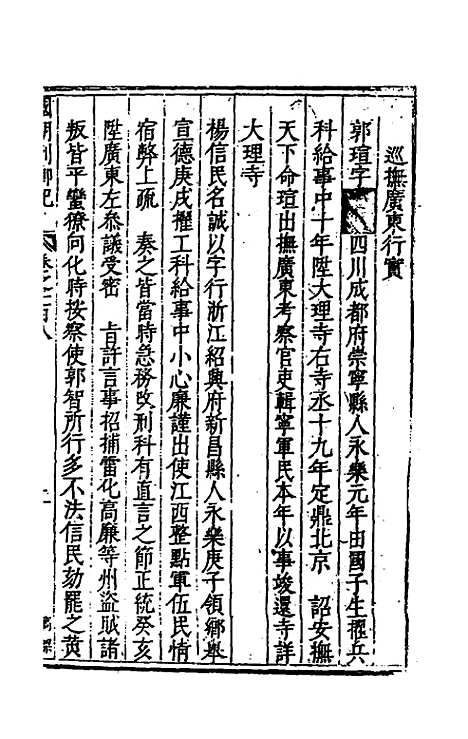 巡撫廣東行實
郭瑄字 四川成都府崇寧縣人永樂元年由國子生擢兵
科給事中十年陞大理寺右寺丞十九年定鼎北京 詔安撫
天下命瑄出撫廣東考察官吏輯寧軍民本年以事竣還寺詳
大理寺
楊信民名誠以字行浙江紹興府新昌縣人永樂庚子領鄉舉
宣德庚戌擢工科給事中小心廉謹出使江西整點軍伍民情
宿弊上疏 奏之皆當時急務改刑科有直言之節正統癸亥
陞廣東左叅議受密 㫖許言事招捕雷化高廉等州盜賊諸
叛皆平蠻獠向化時按察使郭智所行多不法信民劾罷之黄
國朝列卿記 卷之一百八